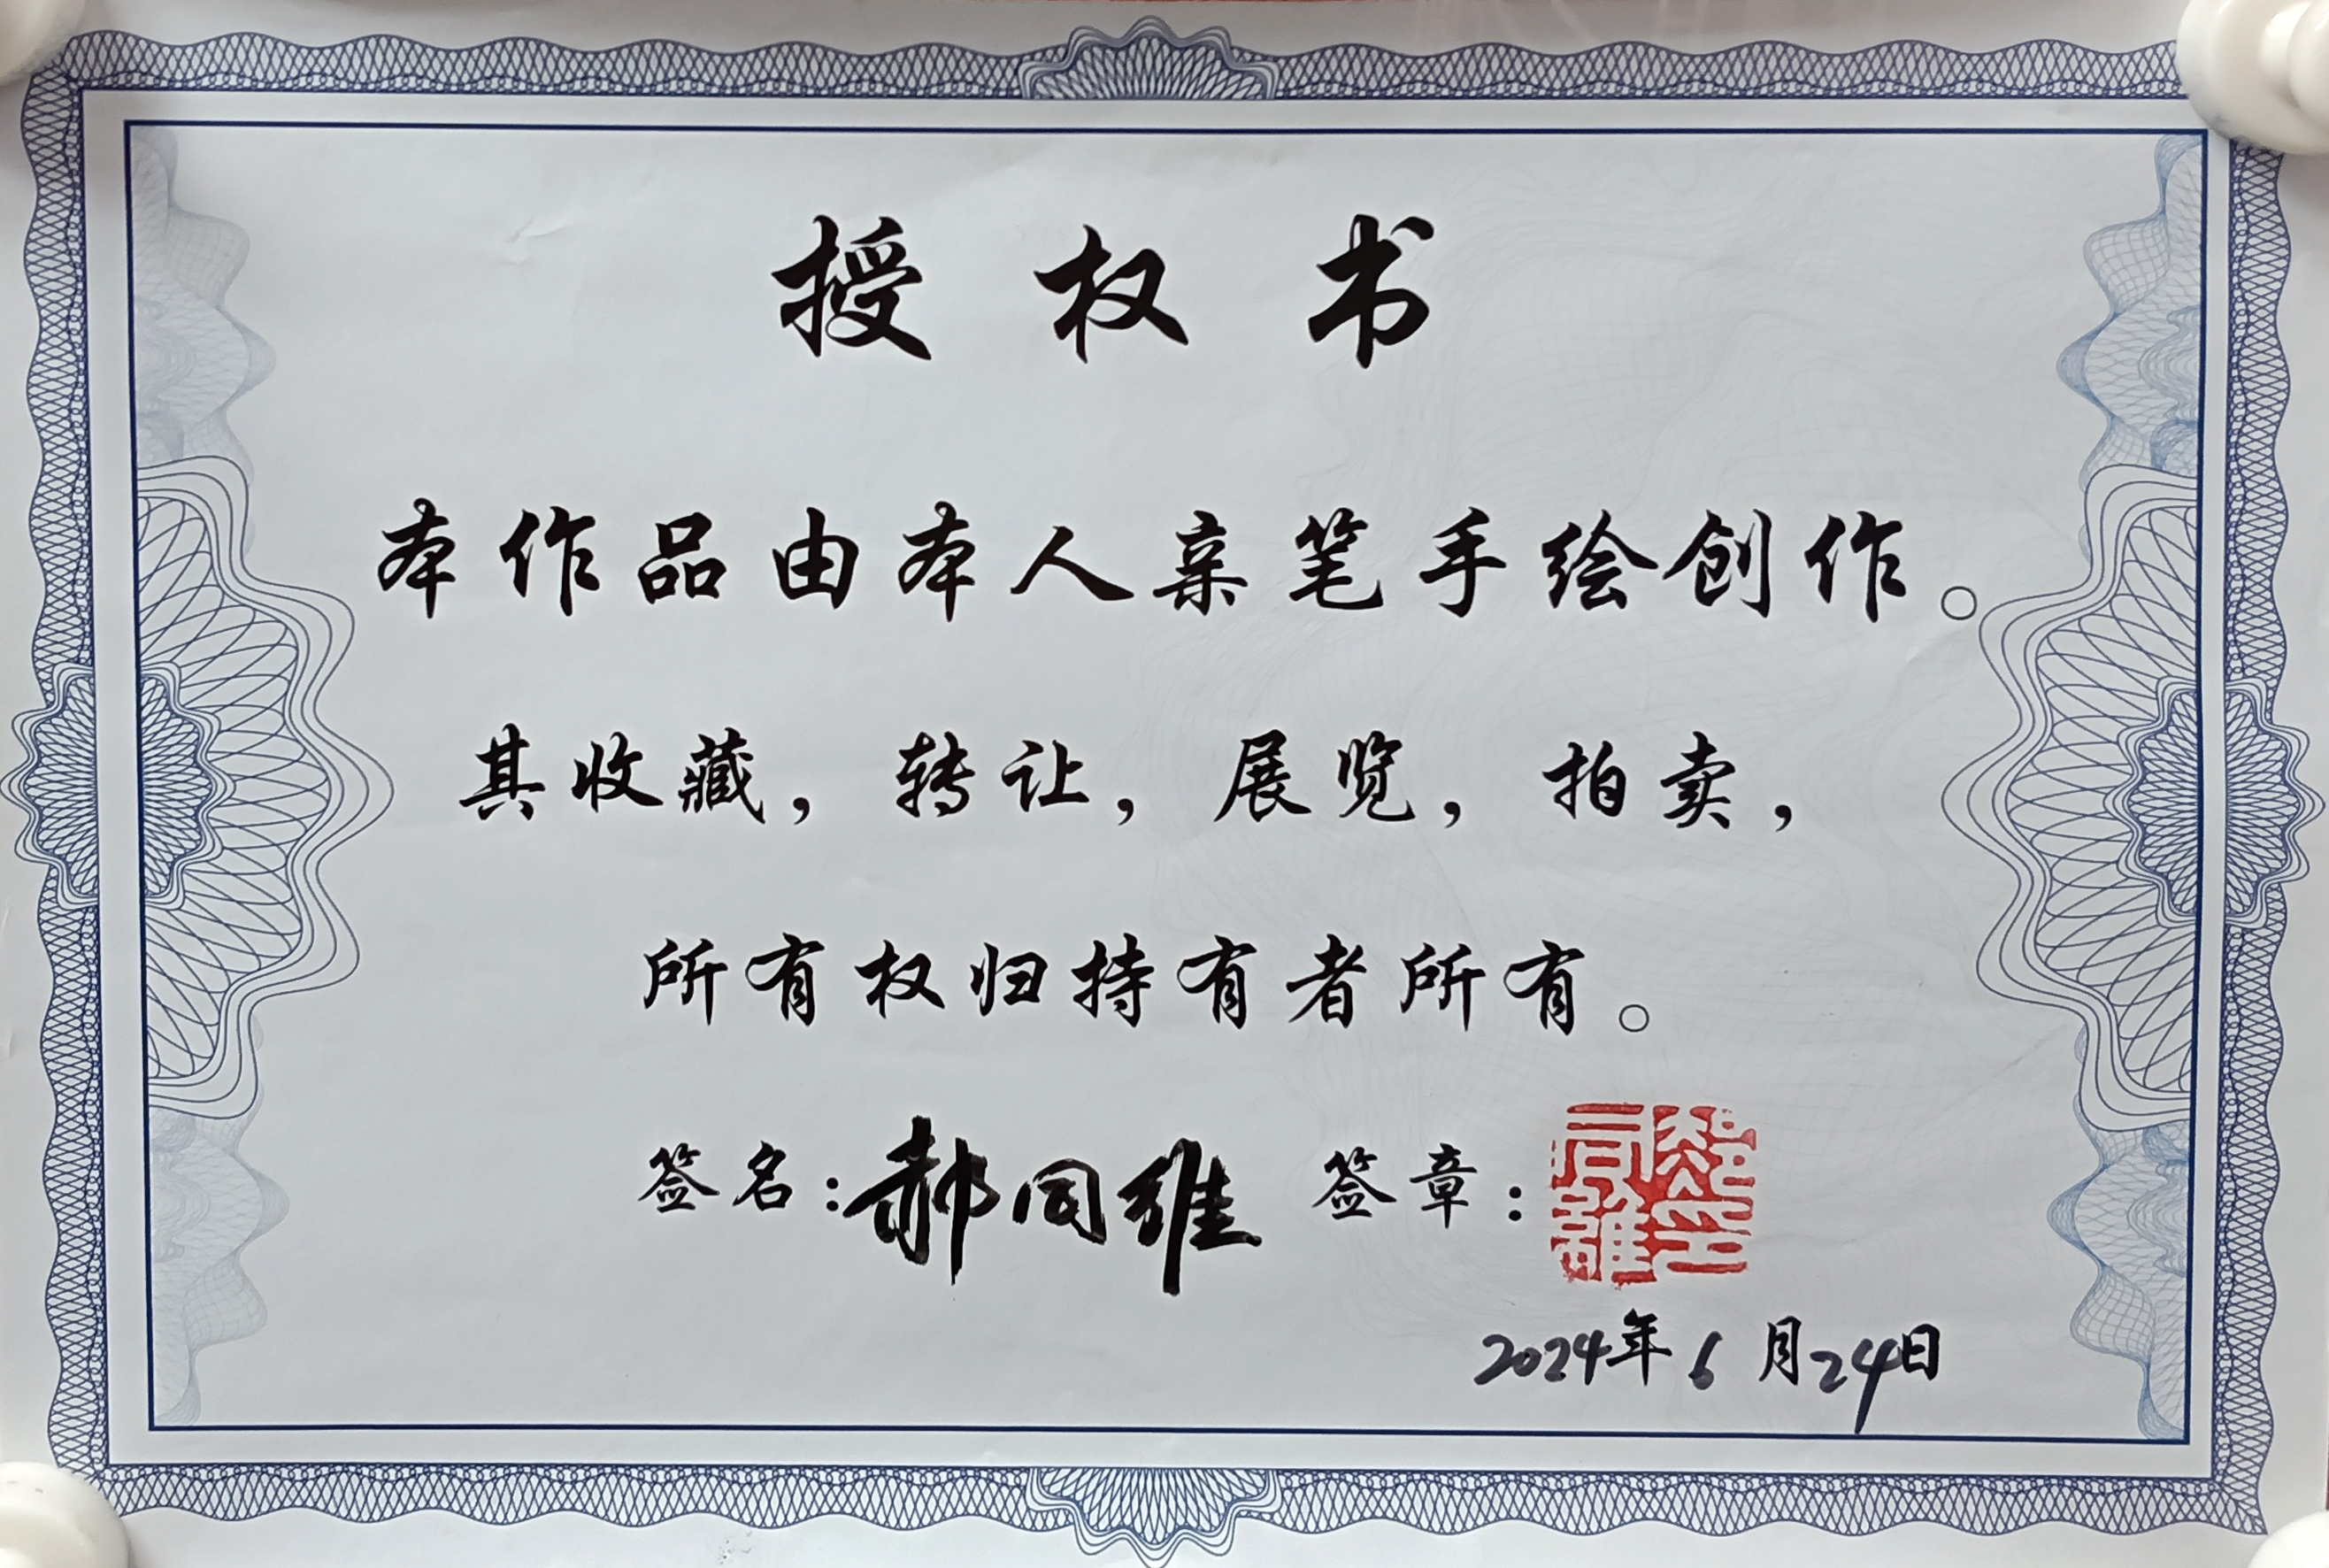 授权书
本作品由本人亲笔手绘创作。
其收藏，转让，展览，拍卖，
所有权归持有者所有。
签名：郝同维 签章：
2024年6月24日